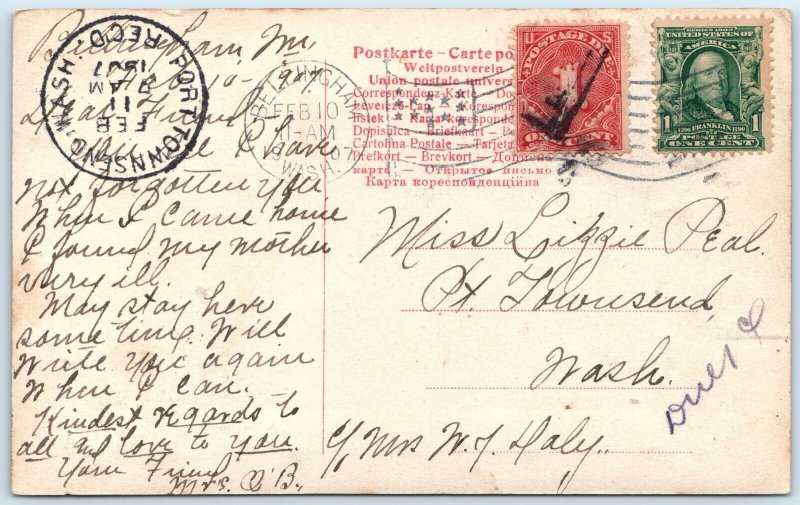 Bellingham, Wn
Feb, 10 - 07
Dear Friend -
You see I have
not forgotten you
When I came home
I found my mother
very ill.
May stay here
some time. Will
write you again
when I can.
Kindest regards to
all and love to you.
Your Friend
Mrs. O'B.
PORT TOWNSEND, WASH.
FEB
11
AM
1907
REC'D.
BELLINGHAM
FEB 10
11-AM
WASH.
Postkarte - Carte po
Weltpostverein
Union postale univers
Correspondenz-Karte - Do
Levelezo-Lap
listek - Karta korespon
Dopisnica - Briefkaart - P
Cartolina Postale - Tarjeta
Brefkort - Brevkort - Дописна
карта - Открытое письмо
Карта кореспонденційна
U S
POSTAGE DUE
1
ONE CENT
SERIES 1902
UNITED STATES OF
AMERICA
1706 FRANKLIN 1790
POSTAGE
1 ONE CENT 1
Miss Lizzie Peal.
Pt. Townsend,
Wash.
c/o Mrs W. J. Daly.
Due 1 ¢